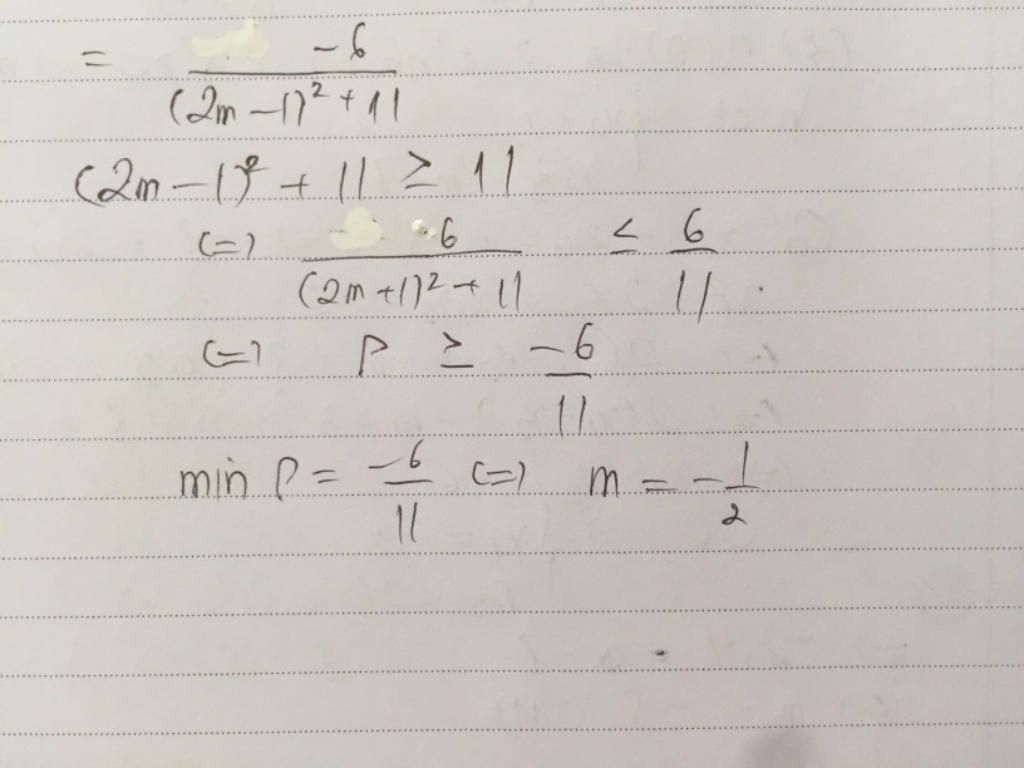 = -6 / ((2m - 1)² + 11)
(2m - 1)² + 11 ≥ 11
(=) 6 / ((2m + 1)² + 11) ≤ 6 / 11 .
(=) P ≥ -6 / 11
min P = -6 / 11 (=) m = - 1 / 2